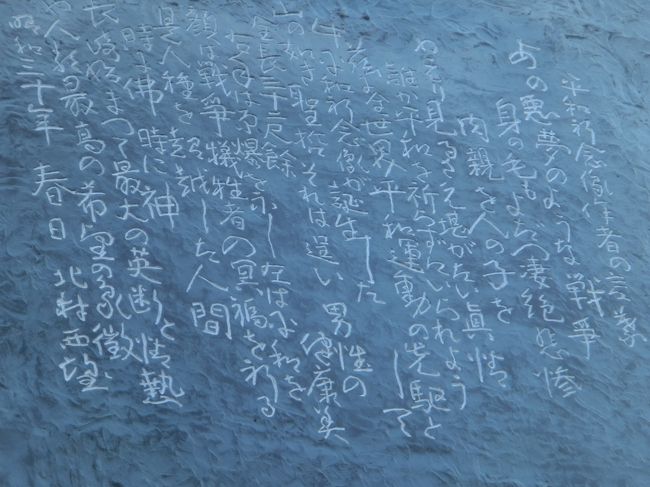 平和祈念像作者の言葉
あの悪夢のような戦争
身の毛もよだつ凄絶悲惨
肉親を人の子を
かえり見るさえ堪がたい眞情
誰か平和を祈らずにいられよう
茲に全世界平和運動の先駆と
して
平和祈念像が誕生した
山の如き聖哲それは逞い 男性の
健康美
全長三十二尺餘
右手は原爆を示し 左手は平和を
顔は戦争犠牲者の冥福を祈る
是人種を超越した人間
時に佛 時に神
長崎始まつて最大の英断と情熱
今や人類最高の希望の象徴
昭和三十年 春日 北村西望